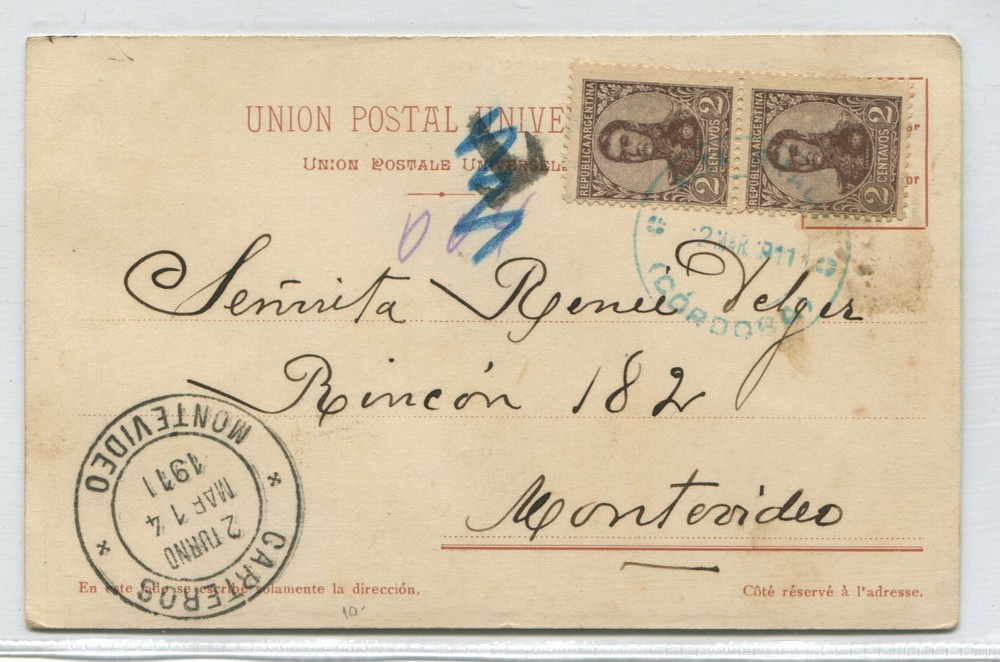 UNION POSTAL UNIVE
UNION POSTALE UNIVERSELL
REPUBLICA ARGENTINA
2 CENTAVOS 2
REPUBLICA ARGENTINA
2 CENTAVOS 2
MAR 1911
(CÓRDOBA)
Señorita Renée Velger
Rincón 182
Montevideo
MONTEVIDEO
1911
MAR 14
2 TURNO
CARTEROS
En este lado se escribe solamente la dirección.
Côté réservé à l'adresse.
10-